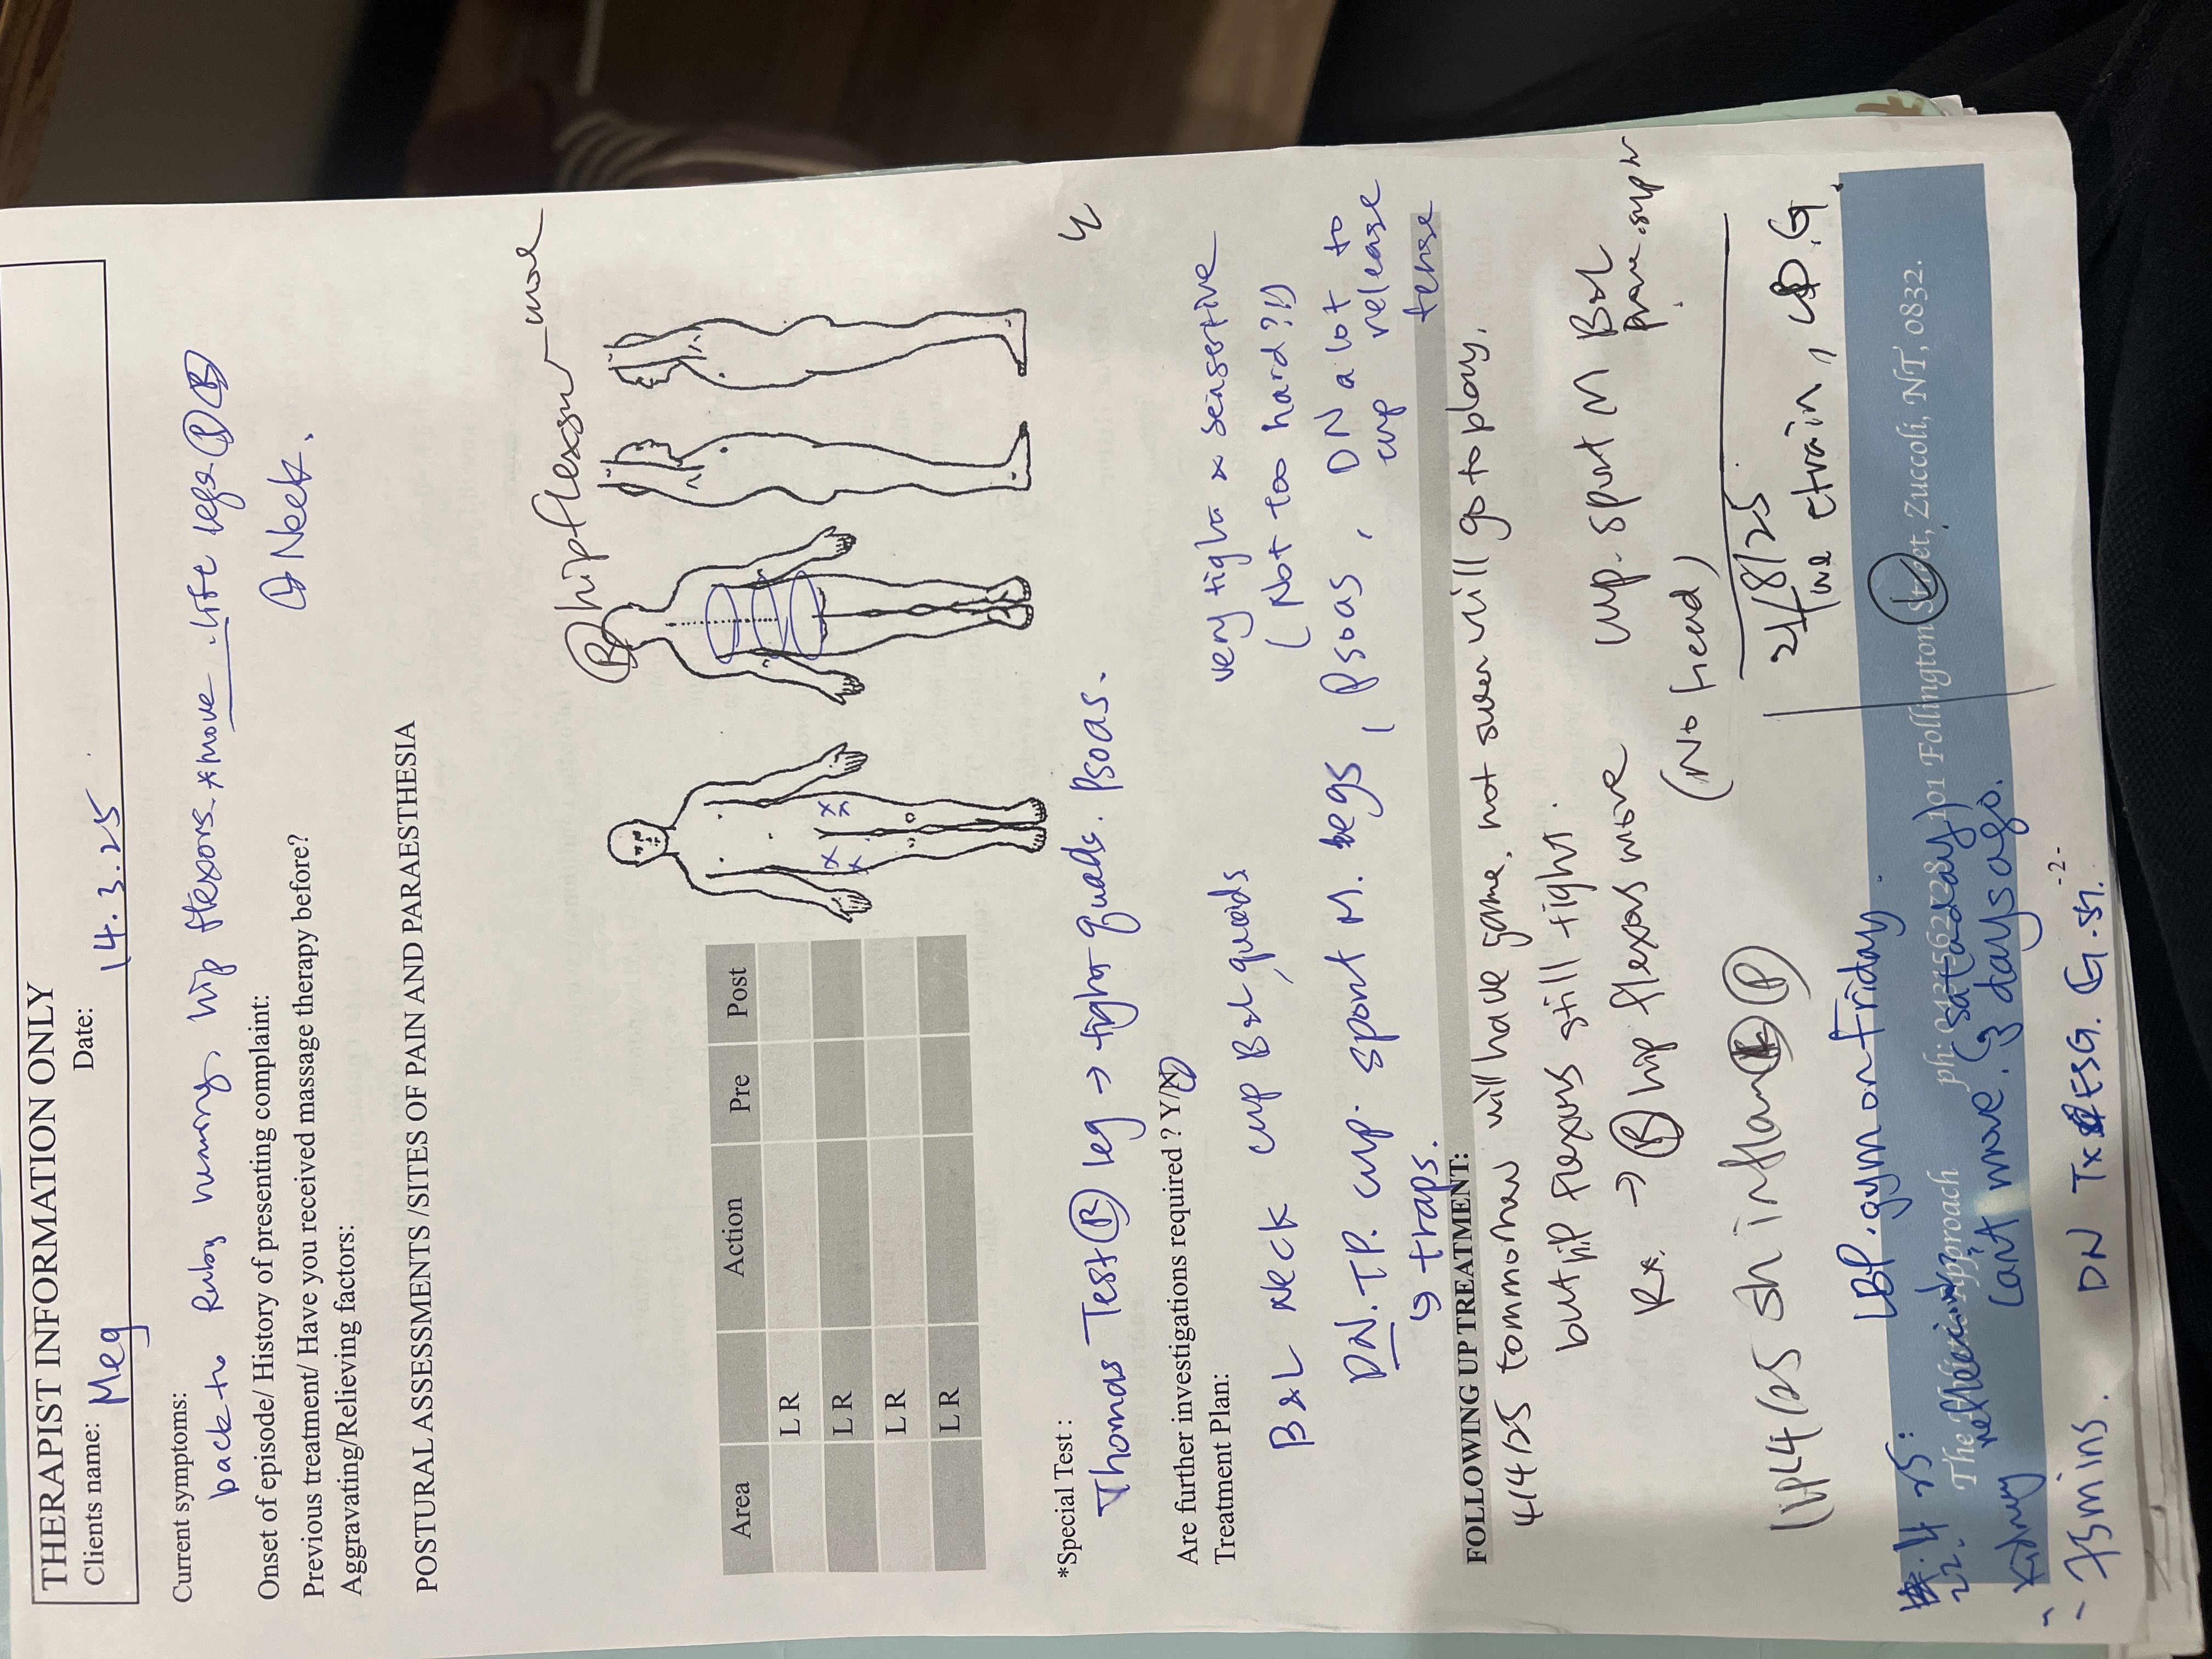 THERAPIST INFORMATION ONLY
Clients name: Meg Date: 14.3.25
Current symptoms:
back to Ruby running, hip flexors. *move. life legs
Neck.
Onset of episode/ History of presenting complaint:
Previous treatment/ Have you received massage therapy before?
Aggravating/Relieving factors:
POSTURAL ASSESSMENTS /SITES OF PAIN AND PARAESTHESIA
R hip flexsur move
Area Action Pre Post
L R
L R
L R
L R
*Special Test :
Thomas Test R leg → tight quads. Psoas.
Are further investigations required ? Y/N
very tight & sensertive
Treatment Plan:
(Not too hard?!)
B&L Neck cup B&L quads
DN. TP. cup. sport M. legs, Psoas, DN a lot to
cup release
↳ traps. tense
FOLLOWING UP TREATMENT:
4/4/25 tommorow will have game, not suer will go to play.
but hip flexors still tight.
Rx. → R hip flexors more cup. sport M B&L
(No head)
11/4/25 shin flam R P
21/8/25
strain, G.
22.4.25: LBP. gym on Friday.
The Approach ph: 101 Follington Street, Zuccoli, NT, 0832.
(satarday)
Kidney cant move. (3 days ago.
- 75mins. DN Tx G. sh.
-2-